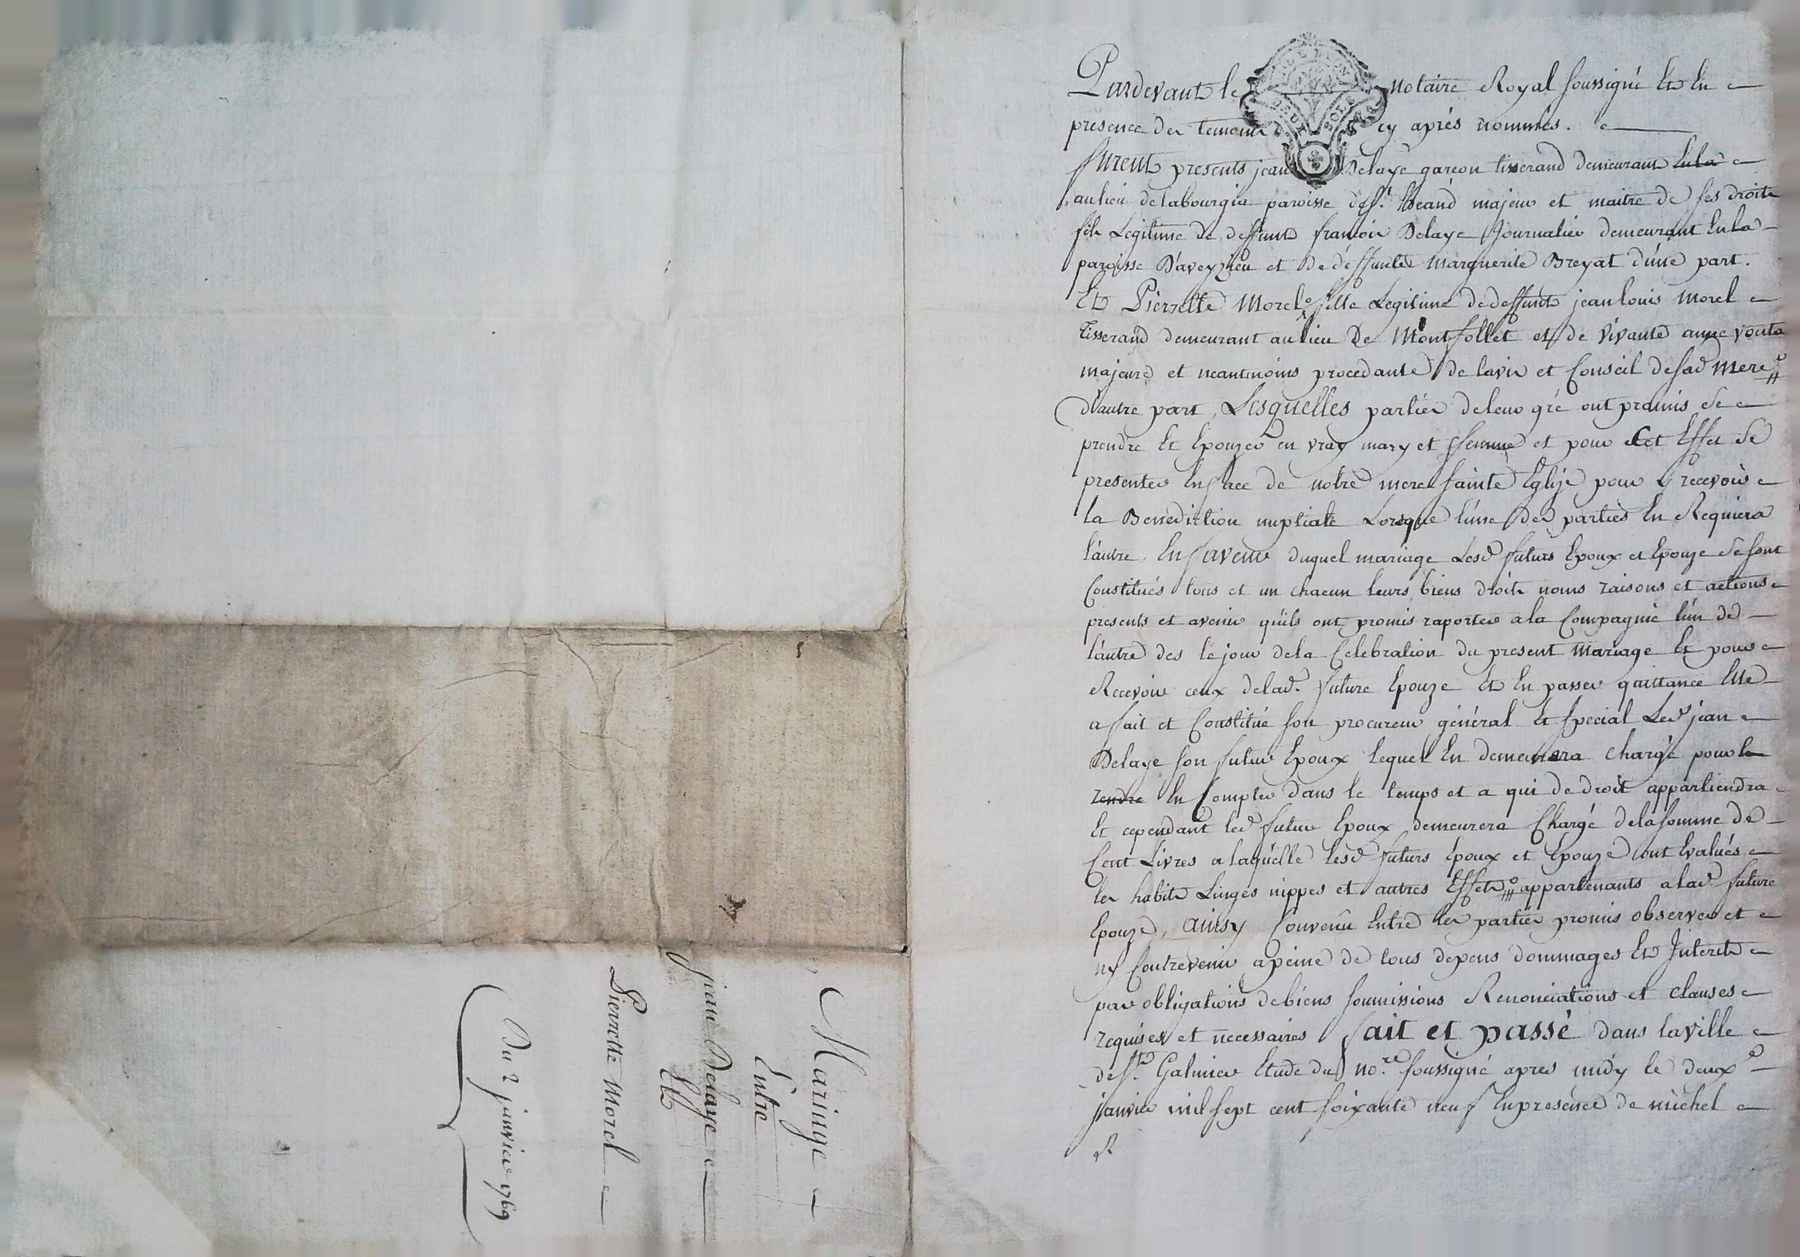 Pardevant le notaire Royal soussigné Et En
presence des temoins cy aprés nommés.
furent presents jean Delaye garcon tisserand demeurant
au lieu de labourgia paroisse de st. heand majeur et maitre de ses droits
fils Legitime de deffunt francois Delaye journalier demeurant En la
paroisse D'aveyzieu et De deffunte Marguerite Breyat d'une part.
Et Pierrette Morel fille Legitime de deffunt jean louis Morel
Tisserand demeurant au lieu De Montfollet et de vivante anne
majeure et neantmoins procedante de lavis et Conseil de sad. Mere
d'autre part, Lesquelles parties de leur gré ont promis Se
prendre Et Epouzer en vray mary et ffemme et pour Cet Effet Se
presenter En face de notre mere sainte Eglise pour y recevoir
la Benediction nuptiale Lorsque l'une des parties En Requiera
l'autre En faveur duquel mariage Lesd. futurs Epoux et Epouze Se sont
Constitués tous et un chacun leurs biens droits noms raisons et actions
presents et avenir qu'ils ont promis raporter a la Compagnie l'un de
l'autre des le jour de la Celebration du present Mariage Et pour
Recevoir ceux de lad. future Epouze Et En passer quittance Elle
a fait et Constitué son procureur général Et special Led. jean
Delaye son futur Epoux lequel En demeurera chargé pour le
rendre En Compter dans le temps et a qui de droit appartiendra
Et cependant led. futur Epoux demeurera Chargé de la somme de
Cent Livres a laquelle lesd. futurs Epoux et Epouze ont Evalués
les habits Linges nippes et autres Effets appartenants a lad. future
Epouze, ainsy Convenu Entre les parties promis observer et
ny Contrevenir a peine de tous depens dommages Et Interets
par obligations de biens soumissions Renonciations et clauses
requises et necessaires fait et passé dans la ville
de st. Galmier Etude du no.re soussigné apres midy le deux
janvier mil sept cent soixante neuf En presence de michel
Mariage
Entre
jean Delaye
Et
Pierrette Morel
Du 2 janvier 1769